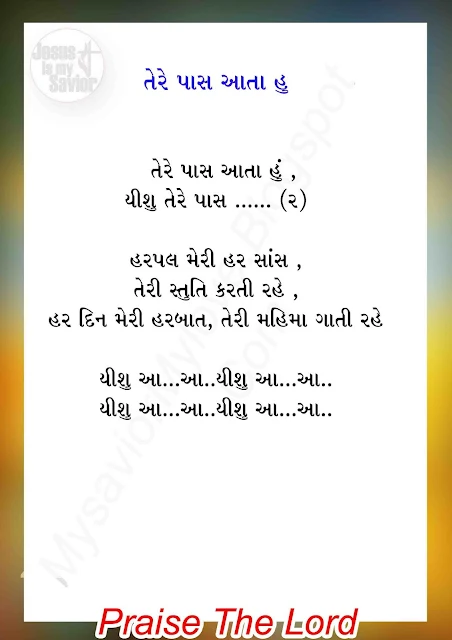 Jesus
is my
Savior
તેરે પાસ આતા હુ
તેરે પાસ આતા હું ,
યીશુ તેરે પાસ ...... (૨)
હરપલ મેરી હર સાંસ ,
તેરી સ્તુતિ કરતી રહે ,
હર દિન મેરી હરબાત, તેરી મહિમા ગાતી રહે
યીશુ આ...આ..યીશુ આ...આ..
યીશુ આ...આ..યીશુ આ...આ..
Praise The Lord